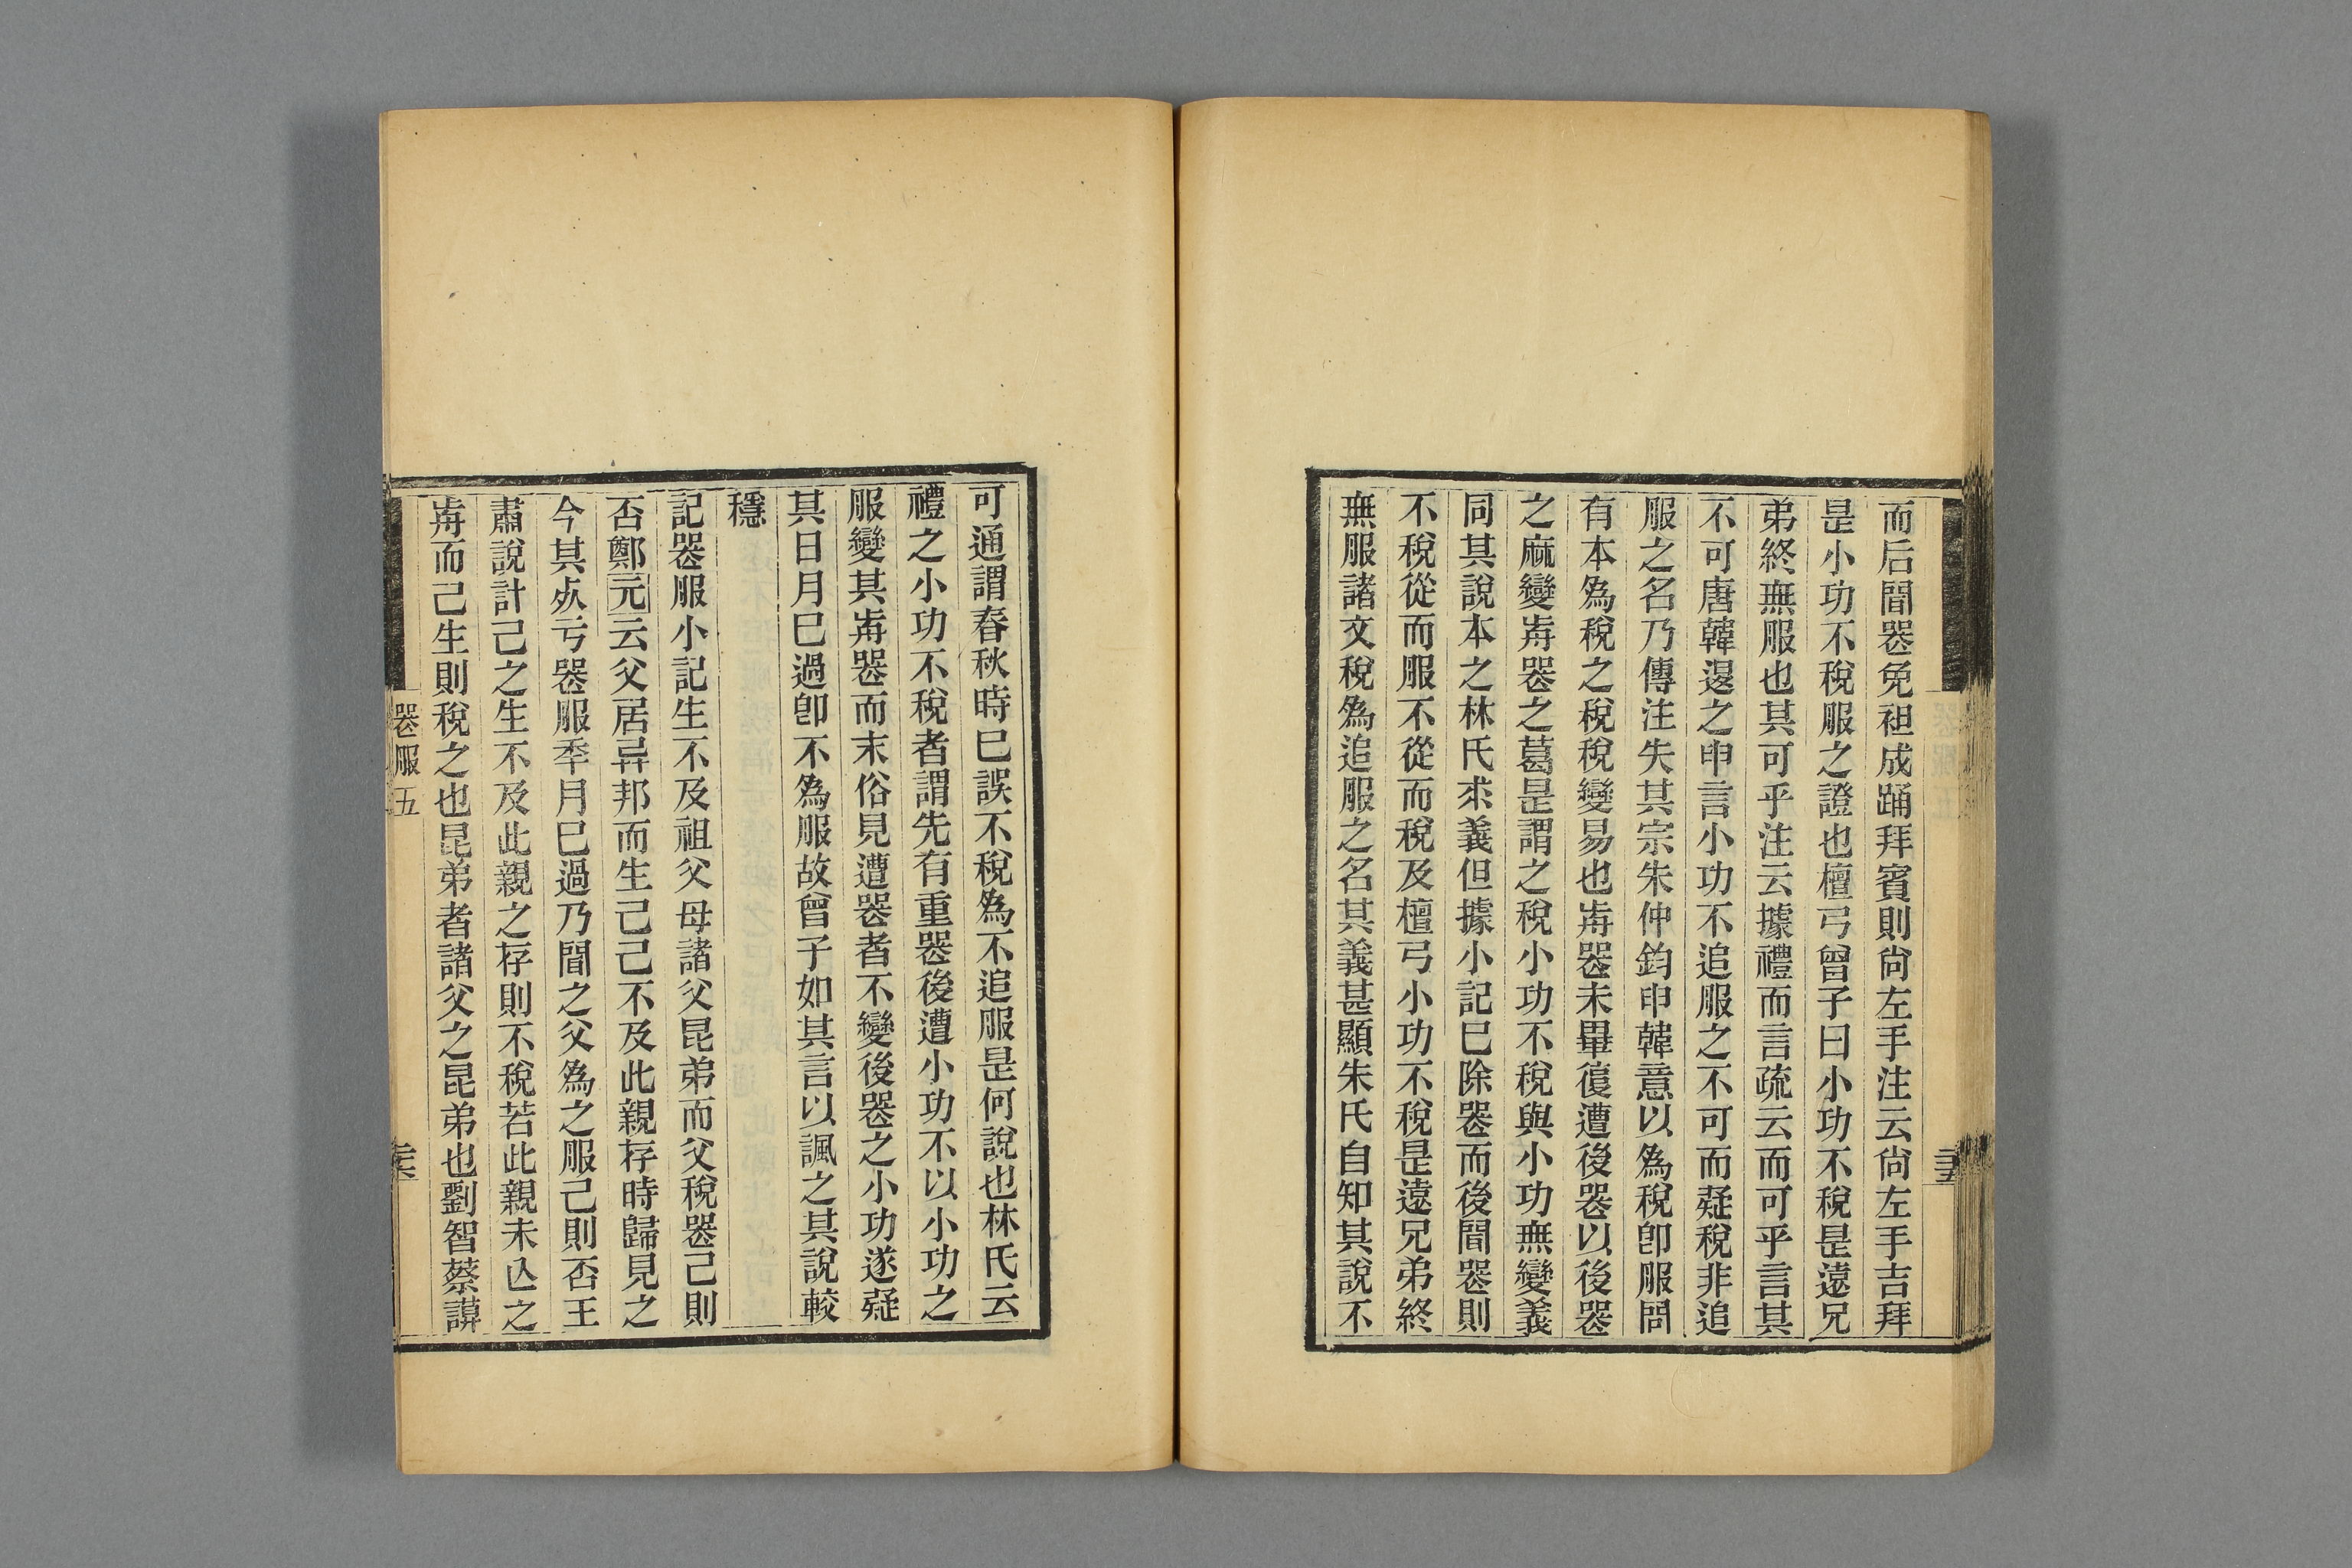 而后聞喪免袒成踊拜賓則尙左手注云尙左手吉拜
是小功不稅服之證也檀弓曾子曰小功不稅是遠兄
弟終無服也其可乎注云據禮而言疏云而可乎言其
不可唐韓退之申言小功不追服之不可而疑稅非追
服之名乃傳注失其宗朱仲鈞申韓意以爲稅卽服問
有本爲稅之稅稅變易也前喪未畢復遭後喪以後喪
之麻變前喪之葛是謂之稅小功不稅與小功無變義
同其說本之林氏求義但據小記已除喪而後聞喪則
不稅從而服不從而稅及檀弓小功不稅是遠兄弟終
無服諸文稅爲追服之名其義甚顯朱氏自知其說不
二十五
可通謂春秋時已誤不稅爲不追服是何說也林氏云
禮之小功不稅者謂先有重喪後遭小功不以小功之
服變其前喪而末俗見遭喪者不變後喪之小功遂疑
其日月已過卽不爲服故曾子如其言以諷之其說較
穩
記喪服小記生不及祖父母諸父昆弟而父稅喪己則
否鄭元云父居异邦而生己己不及此親存時歸見之
今其死亏喪服秊月已過乃聞之父爲之服己則否王
肅說計己之生不及此親之存則不稅若此親未亾之
前而己生則稅之也昆弟者諸父之昆弟也劉智蔡謨
喪服五
二十六